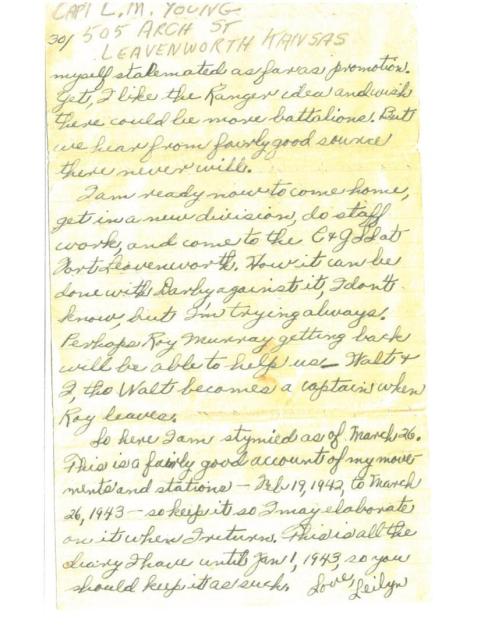 CAPT L.M. YOUNG
301 505 ARCH ST
LEAVENWORTH KANSAS
myself stalemated as far as promotion.
Yet, I like the Ranger idea and wish
there could be more battalions. But
we hear from fairly good source
there never will.
I am ready now to come home,
get in a new division, do staff
work, and come to the C & GSS at
Fort Leavenworth. How it can be
done with Darby against it, I don't
know, but I'm trying always.
Perhaps Roy Murray getting back
will be able to help us — Walt &
I, tho Walt becomes a captain when
Roy leaves.
So here I am stymied as of March 26.
This is a fairly good account of my move-
ments and stations — Feb 19, 1942, to March
26, 1943 — so keep it so I may elaborate
on it when I return. This is all the
diary I have until Jan 1, 1943, so you
should keep it as such. Love, Leilyn